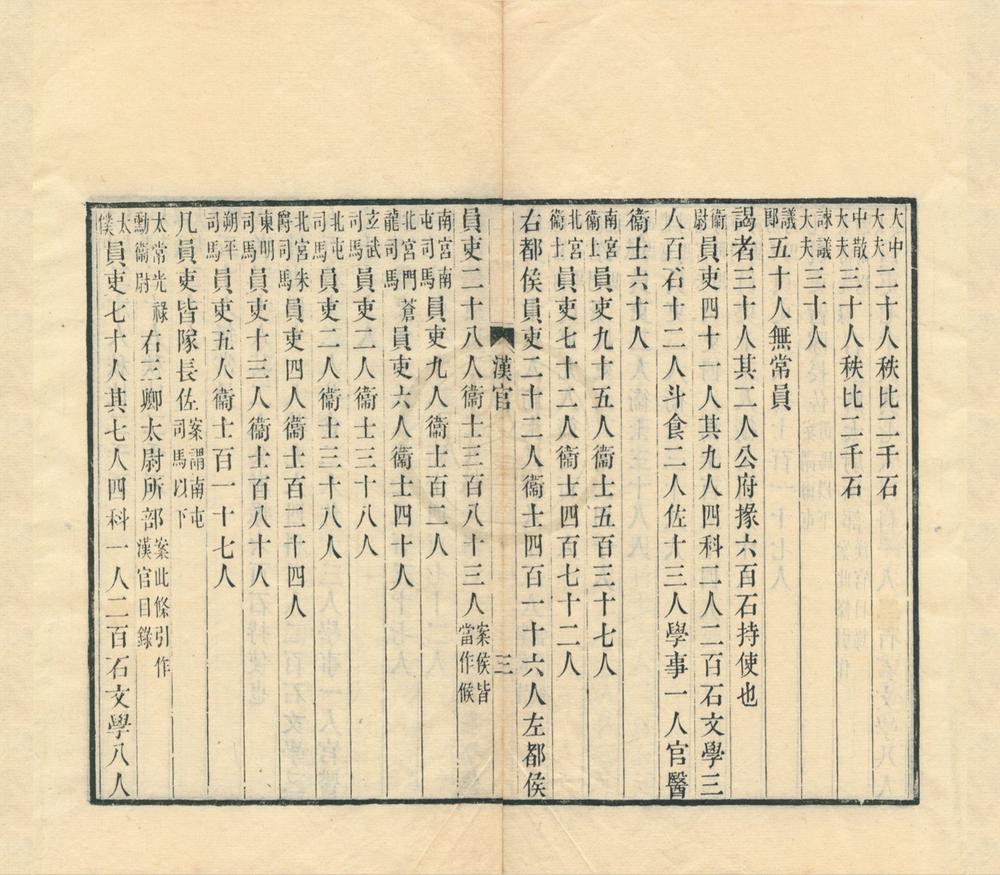 大中大夫二十人秩比二千石
中散大夫三十人秩比二千石
諫議大夫三十人
議郎五十人無常員
謁者三十人其二人公府掾六百石持使也
衛尉員吏四十一人其九人四科二人二百石文學三
人百石十二人斗食二人佐十三人學事一人官醫
衛士六十人
南宮衛士員吏九十五人衛士五百三十七人
北宮衛士員吏七十二人衛士四百七十二人
右都侯員吏二十二人衛士四百一十六人左都侯
漢官 三
員吏二十八人衛士三百八十三人案侯皆當作候
南宮南屯司馬員吏九人衛士百二人
北宮門蒼龍司馬員吏六人衛士四十人
玄武司馬員吏二人衛士三十八人
北屯司馬員吏二人衛士三十八人
北宮朱爵司馬員吏四人衛士百二十四人
東明司馬員吏十三人衛士百八十人
朔平司馬員吏五人衛士百一十七人
凡員吏皆隊長佐案謂南屯司馬以下
太常光祿勳衛尉右三卿太尉所部案此條引作漢官目錄
太僕員吏七十人其七人四科一人二百石文學八人